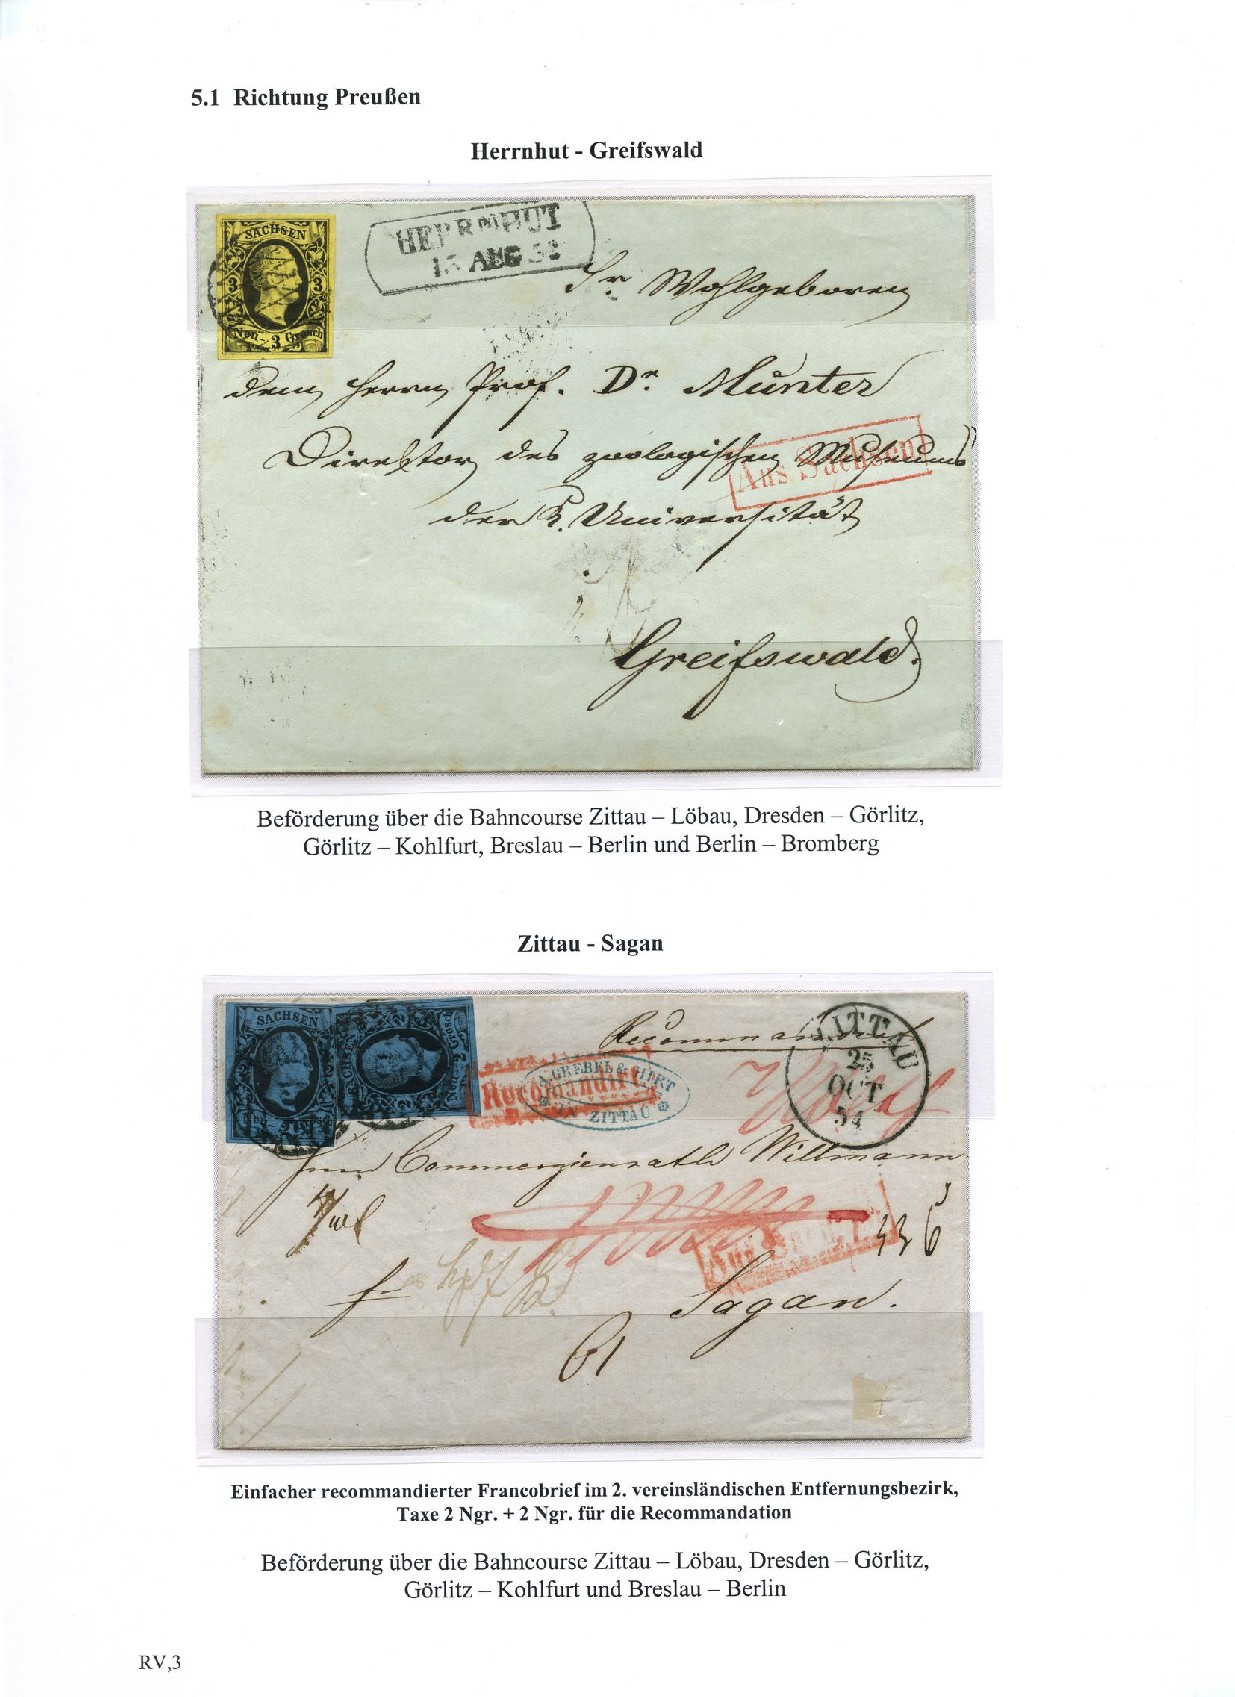 5.1 Richtung Preußen
Herrnhut - Greifswald
SACHSEN
3 3
Neu 3 Grosch
HERRNHUT
15 AUG 52
Sr Wohlgeboren
dem Herrn Prof. Dr. Münter
Direktor des zoologischen Museums
Aus Sachsen
der K. Universität
Greifswald.
Beförderung über die Bahncourse Zittau – Löbau, Dresden – Görlitz,
Görlitz – Kohlfurt, Breslau – Berlin und Berlin – Bromberg
Zittau - Sagan
SACHSEN
ZITTAU
25
OCT
54
Recomandirt.
A. GREBEL & HIRT
IN ZITTAU
Herrn Commerzienrath Willmann
Aus Sachsen
Sagan.
61
Einfacher recommandierter Francobrief im 2. vereinsländischen Entfernungsbezirk,
Taxe 2 Ngr. + 2 Ngr. für die Recommandation
Beförderung über die Bahncourse Zittau – Löbau, Dresden – Görlitz,
Görlitz – Kohlfurt und Breslau – Berlin
RV,3